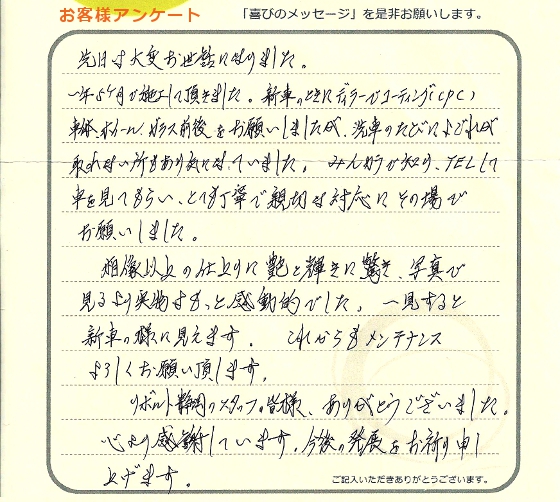 お客様アンケート 「喜びのメッセージ」を是非お願いします。
先日は大変お世話になりました。
一年5ヶ月が施工して頂きました。新車のときにディラーでコーティング(CPC)
車体、ホイール、ガラス前後をお願いしましたが、洗車のたびによごれが
取れない所もあり気になっていました。 TELして
車を見てもらい、とても丁寧で親切な対応にその場で
お願いしました。
想像以上の仕上りに艶と輝きに驚き、写真で
見るより実物はもっと感動的でした。一見すると
新車の様に見えます。これからもメンテナンス
よろしくお願い頂します。
リボルト静岡のスタッフ皆様、ありがとうございました。
心より感謝しています。今後の発展をお祈り申し
上げます。
ご記入いただきありがとうございます。